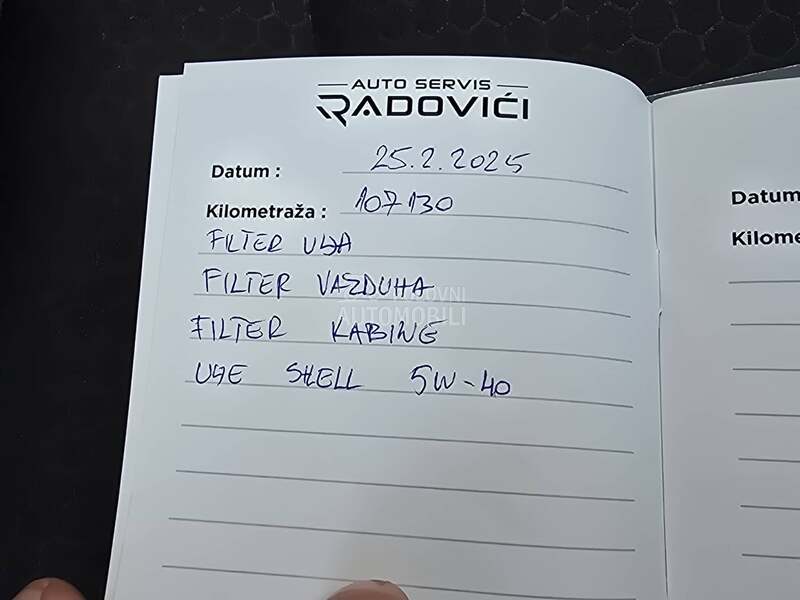 AUTO SERVIS
RADOVIĆI
Datum : 25.2.2025
Kilometraža : 107130
FILTER ULJA
FILTER VAZDUHA
FILTER KABINE
ULJE SHELL 5W-40
POLOVNI
AUTOMOBILI
Datum
Kilome